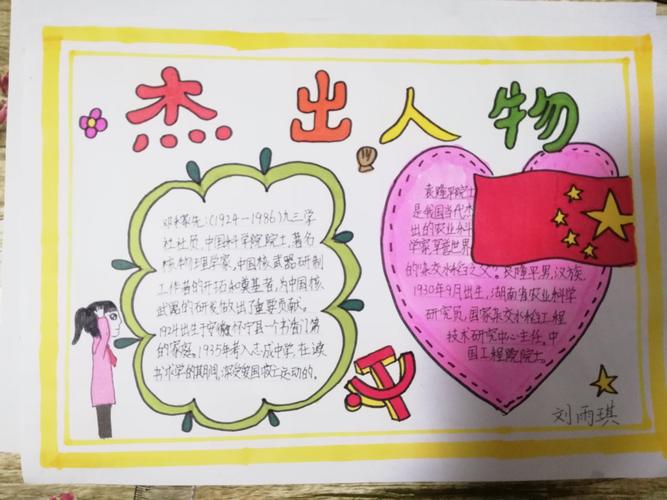 杰出人物
邓稼先:(1924—1986)九三学
社社员,中国科学院院士,著名
核物理学家,中国核武器研制
工作者的开拓和奠基者,为中国核
武器的研发做出了重要贡献。
1924出生于安徽怀宁县一个书香门第
的家庭。1935年考入志成中学,在读
书求学的期间,深受爱国救亡运动的。
袁隆平院士
是我国当代杰
出的农业科
学家,享誉世界
的"杂交水稻之父"。袁隆平男,汉族,
1930年9月出生,湖南省农业科学
研究员,国家杂交水稻工程
技术研究中心主任,中
国工程院院士。
刘雨琪